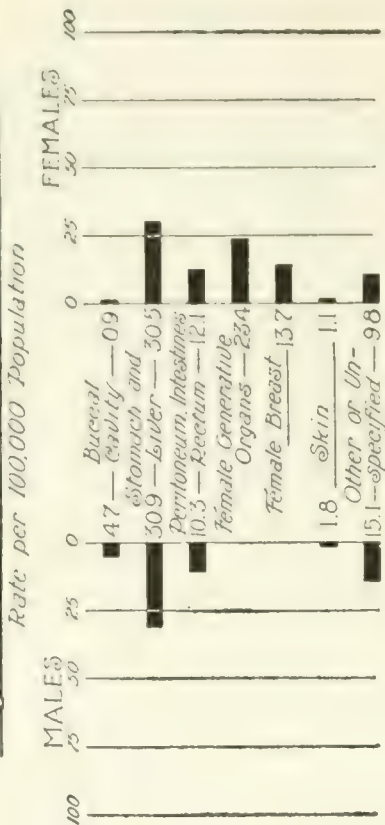 Rate per 100,000 Population
MALES FEMALES
100 75 50 25 0 0 25 50 75 100
Buccal
47 — Cavity — 09
Stomach and
309 — Liver — 305
Peritoneum, Intestines
10.3 — Rectum — 12.1
Female Generative
Organs — 234
Female Breast 13.7
1.8 — Skin — 1.1
Other or Un-
15.1 — Specified — 98